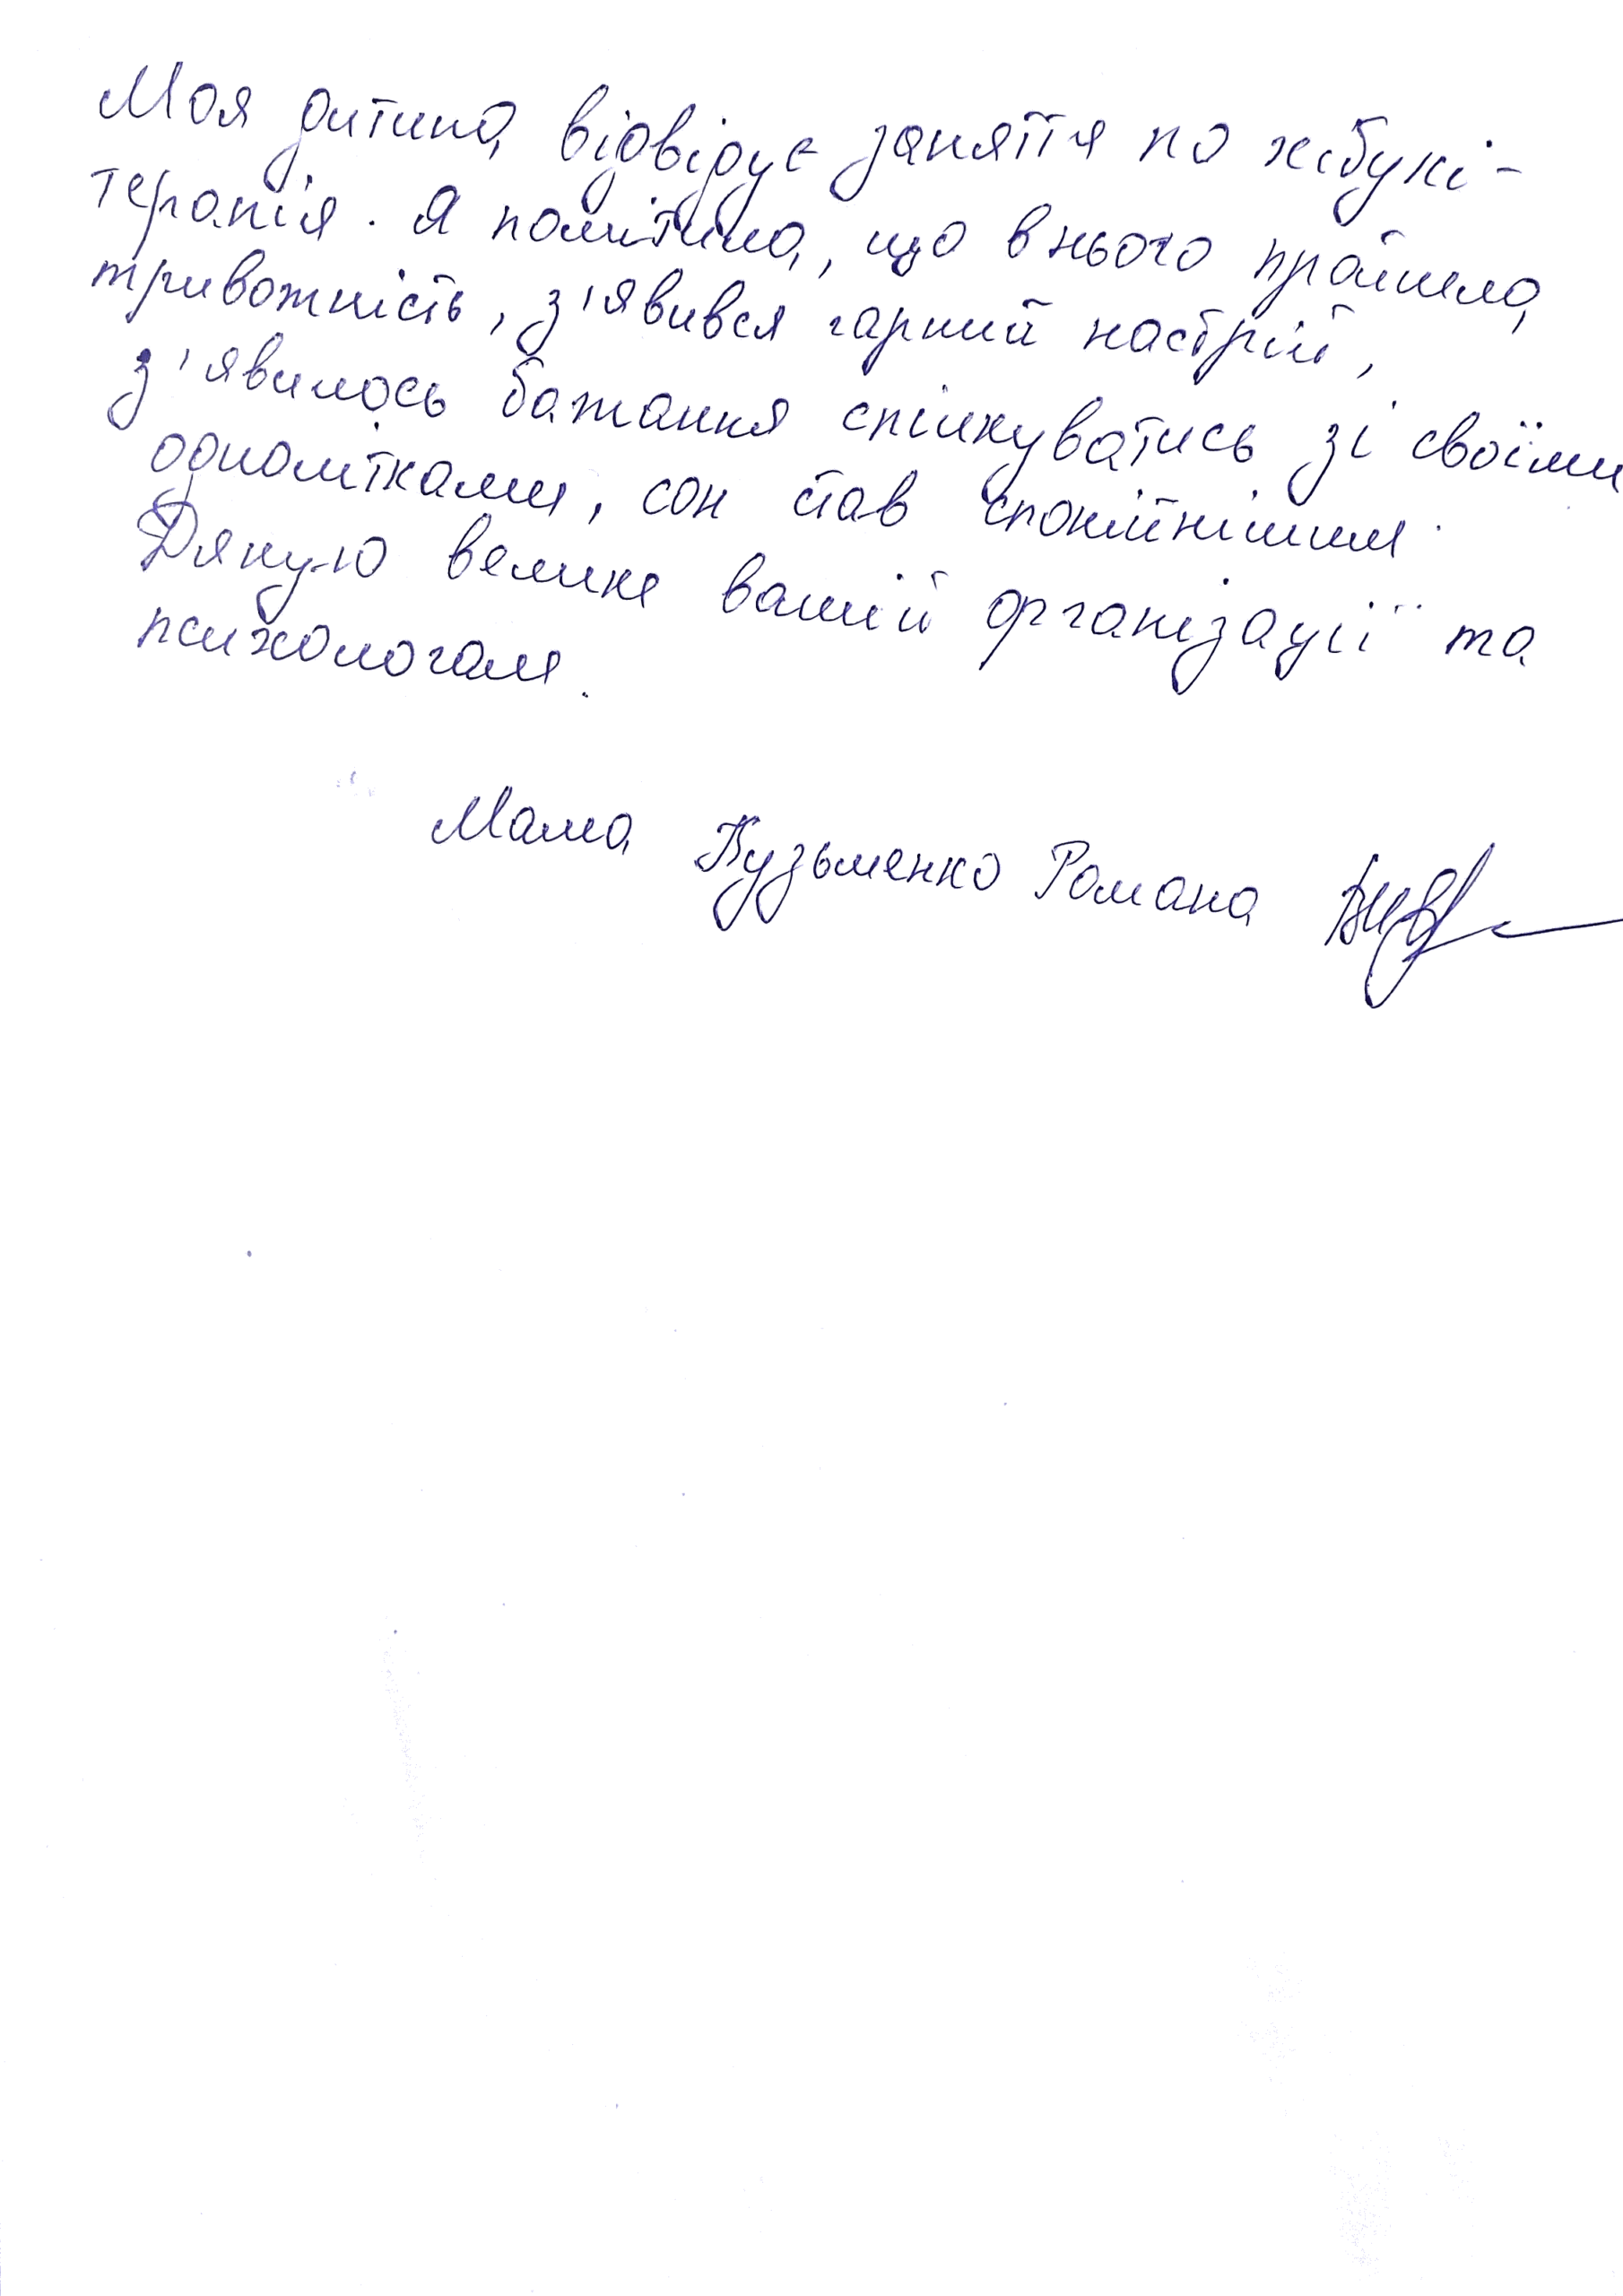 Моя дитина відвідує заняття по хібукі-
терапія. Я помітила, що в нього пройшла
тривожність, з'явився гарний настрій,
з'явилось бажання спілкуватись зі своїми
однолітками, сон став спокійнішим.
Дякую велике вашій організації та
психологам.
Мама Кузьменко Романа